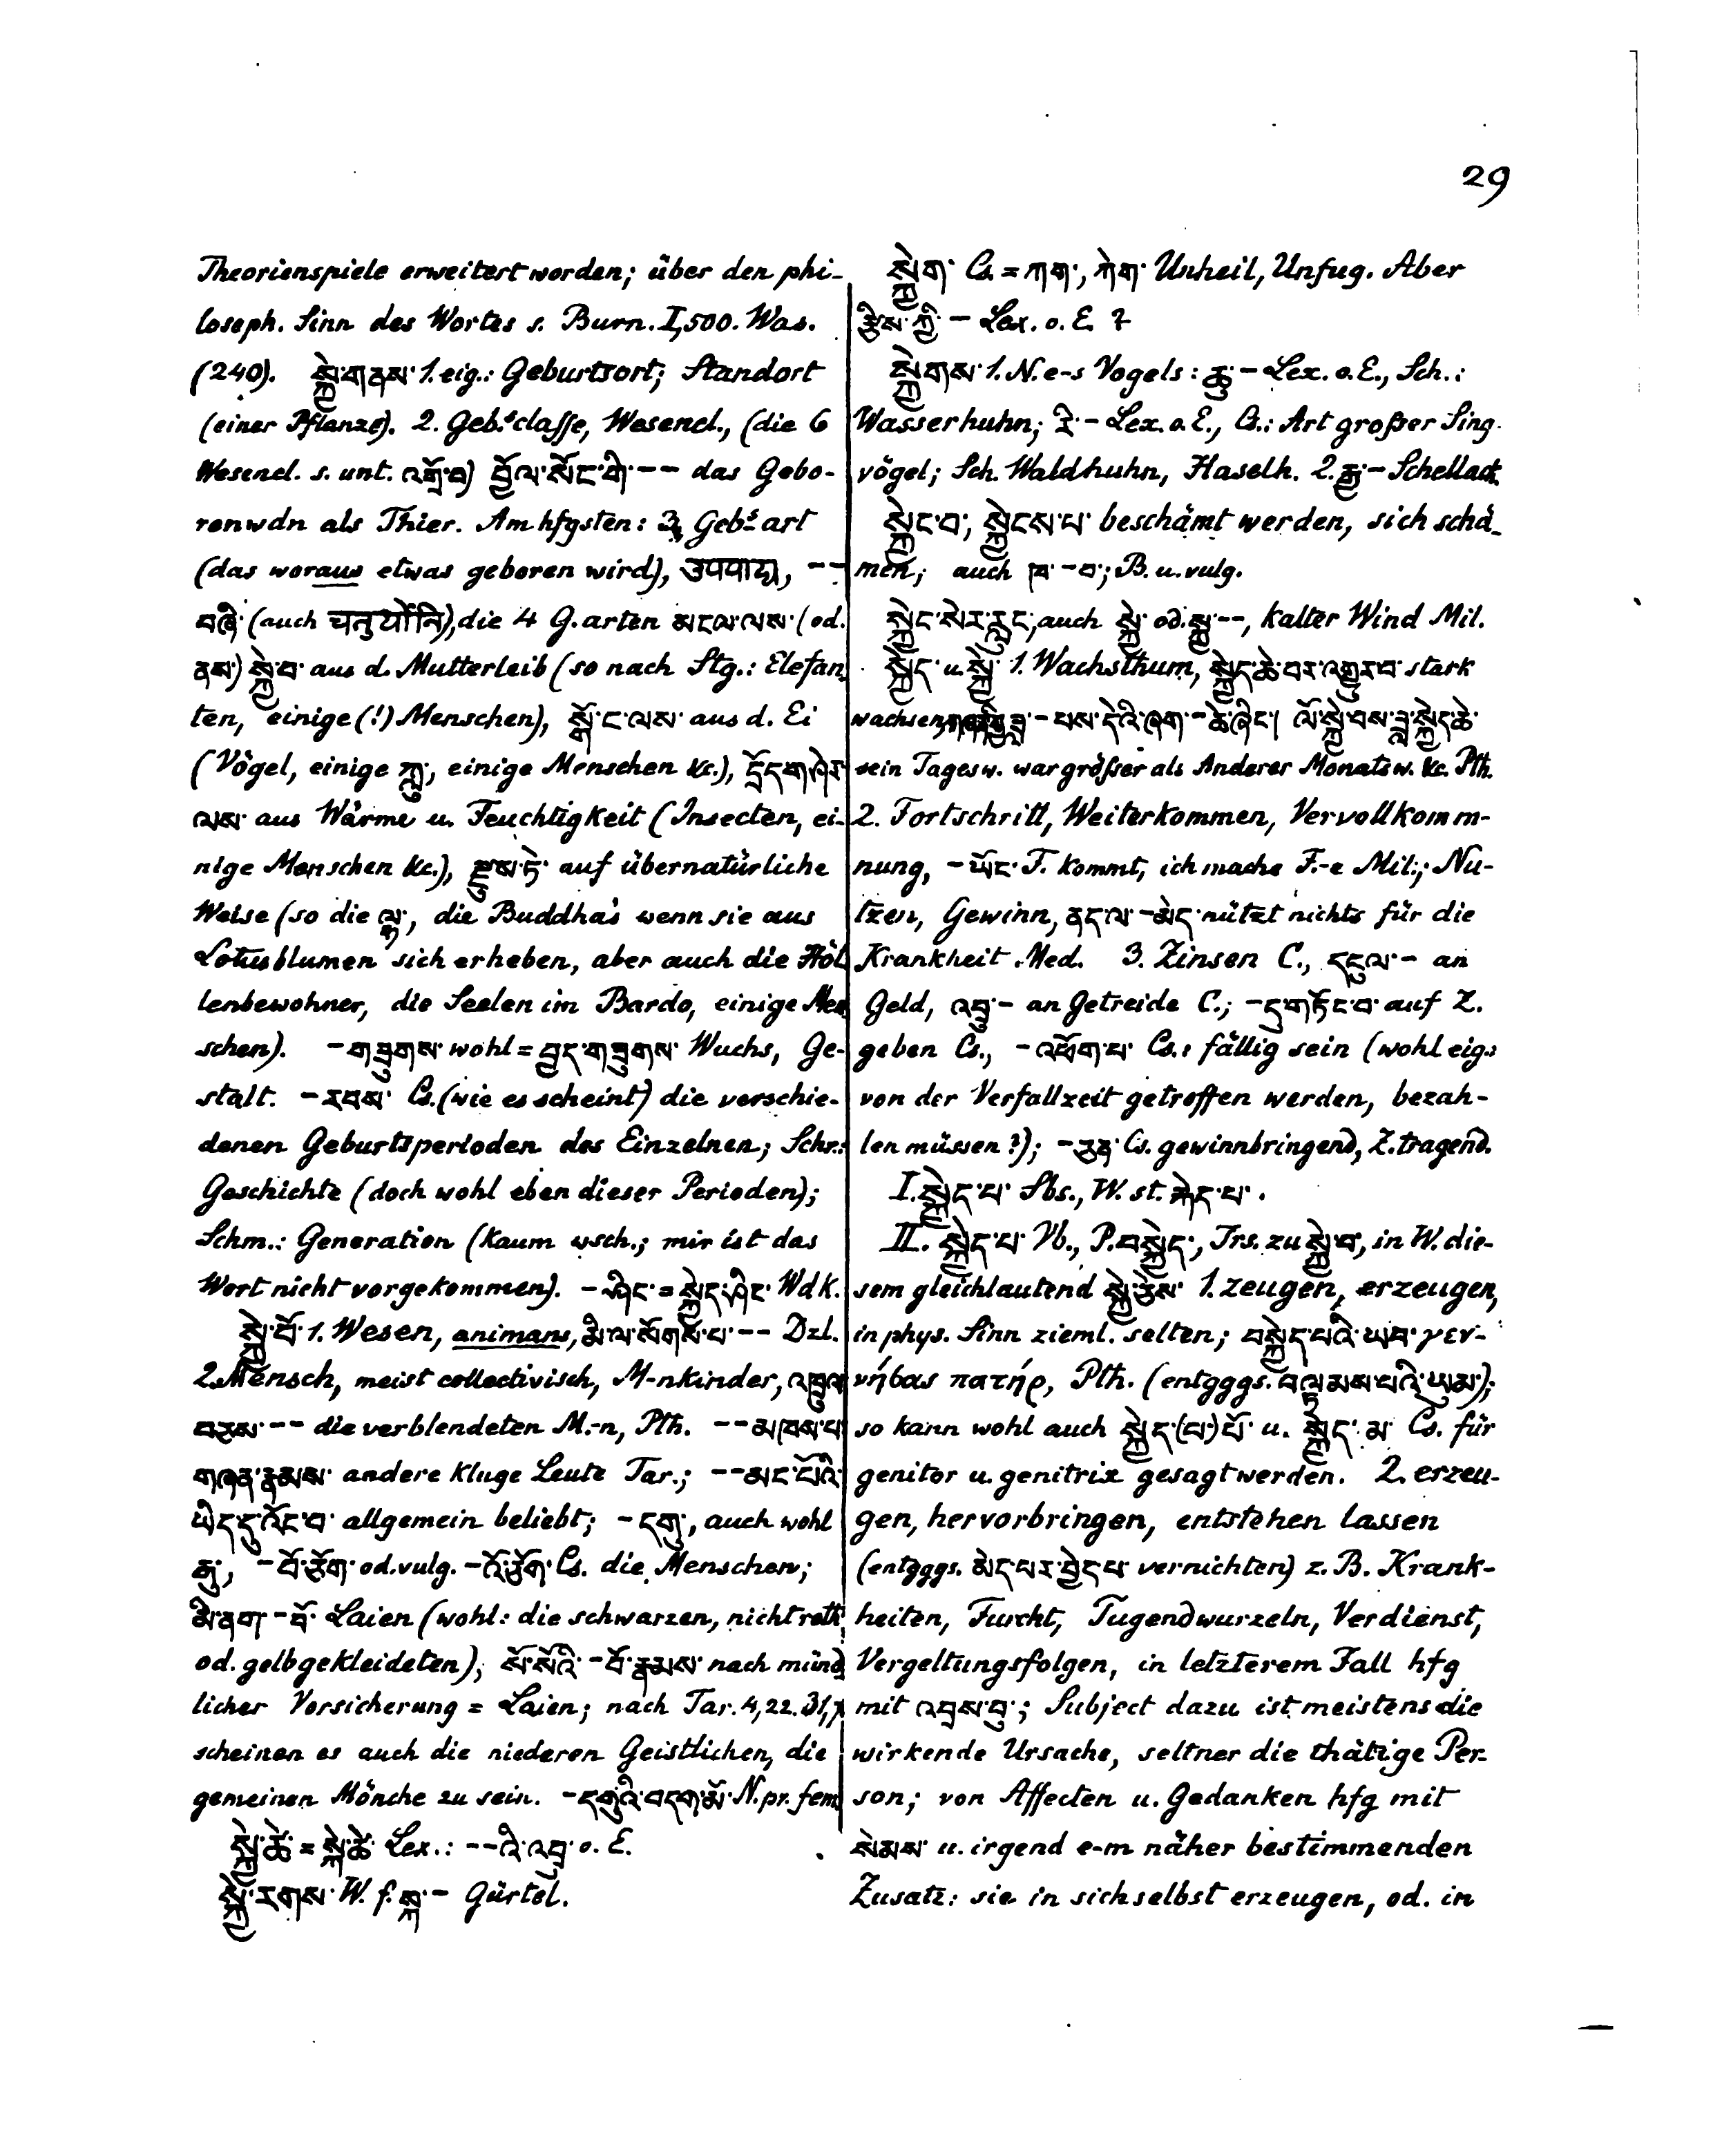 29
Theorienspiele erweitert worden; über den phi-
losoph. Sinn des Wortes s. Burn. I, 500. Was.
(240). སྐྱེ་གནས་ 1. eig.: Geburtsort; Standort
(einer Pflanze). 2. Geb.sclasse, Wesencl., (die 6
Wesencl. s. unt. འགྲོ་བ) བྱོལ་སོང་གི་ -- das Gebo-
renwdn als Thier. Am hfgsten: 3, Geb.s art
(das woraus etwas geboren wird), उपपादुक, --
བཞི་ (auch चतुर्योनि), die 4 G.arten མངལ་ལས་ (od.
ནས་) སྐྱེ་བ་ aus d. Mutterleib (so nach Stg.: Elefan-
ten, einige (!) Menschen), སྒོ་ང་ལས་ aus d. Ei
(Vögel, einige ཀླུ་, einige Menschen &c.), དྲོད་གཤེར་
ལས་ aus Wärme u. Feuchtigkeit (Insecten, ei-
nige Menschen &c.), རྫུས་ཏེ་ auf übernatürliche
Weise (so die ལྷ་, die Buddha's wenn sie aus
Lotusblumen sich erheben, aber auch die Höl-
lenbewohner, die Seelen im Bardo, einige Men-
schen). - གཟུགས་ wohl = བྱད་གཟུགས་ Wuchs, Ge-
stalt. - རབས་ Cs. (wie es scheint) die verschie-
denen Geburtsperioden des Einzelnen; Schr.:
Geschichte (doch wohl eben dieser Perioden);
Schm.: Generation (kaum wsch.; mir ist das
Wort nicht vorgekommen). - ཤིང་ = སྐྱེད་ཤིང་ Wdk.
སྐྱེ་བོ་ 1. Wesen, animans, མི་ལ་སོགས་པ་ -- Dzl.
2. Mensch, meist collectivisch, M-nkinder, འཁྲུལ་
བཅས་ -- die verblendeten M.-n, Pth. -- མཁས་པ་
གཞན་རྣམས་ andere kluge Leute Tar.; -- མང་པོའི་
ཡིད་དུ་འོང་བ་ allgemein beliebt; - དགུ་, auch wohl
རྒུ་, - བོ་ཅོག་ od. vulg. - འོ་ཅོག་ Cs. die Menschen;
མི་ནག་ - བོ་ Laien (wohl: die schwarzen, nicht roth
od. gelbgekleideten); སོ་སོའི་ - བོ་རྣམས་ nach münd-
licher Versicherung = Laien; nach Tar. 4, 22. 31, 7
scheinen es auch die niederen Geistlichen, die
gemeinen Mönche zu sein. - དགུའི་བདག་མོ་ N. pr. fem.
སྐྱེ་ཚེ་ = སྐེ་ཚེ་ Lex.: -- འི་འབྲུ་ o. E.
སྐྱེ་རགས་ W. f. སྐ་ - Gürtel.
སྐྱེག་ Cs. = ཀག་, ཀེག་ Unheil, Unfug. Aber
རྩིས་ཀྱི་ - Lex. o. E. ?
སྐྱེགས་ 1. N. e-s Vogels: ཆུ་ - Lex. o. E., Sch.:
Wasserhuhn; རི་ - Lex. o. E., Cs.: Art großer Sing-
vögel; Sch. Waldhuhn, Haselh. 2. རྒྱ་ - Schellack.
སྐྱེང་བ་, སྐྱེངས་པ་ beschämt werden, sich schä-
men; auch ཁ་ - བ་; B. u. vulg.
སྐྱེང་སེར་རླུང་, auch སྐྱེ་ od. སྐྱ་ --, kalter Wind Mil.
སྐྱེད་ u. སྐྱེ་ 1. Wachsthum, སྐྱེད་ཆེ་བར་འགྱུར་བ་ stark
wachsen, - པས་དེའི་ཞག་ - ཆེ་ཞིང་། ལོ་སྐྱེ་བས་ཟླ་སྐྱེད་ཆེ་
sein Tagesw. war größer als Anderer Monatsw. &c. Pth.
2. Fortschritt, Weiterkommen, Vervollkomm-
nung, - ཡོང་ F. kommt, ich mache F.-e Mil.; Nu-
tzen, Gewinn, ནད་ལ་ - མེད་ nützt nichts für die
Krankheit Med. 3. Zinsen C., དངུལ་ - an
Geld, འབྲུ་ - an Getreide C.; - དུ་གཏོང་བ་ auf Z.
geben Cs., - འཕོག་པ་ Cs.: fällig sein (wohl eig.:
von der Verfallzeit getroffen werden, bezah-
len müssen?); - ཅན་ Cs. gewinnbringend, Z. tragend.
I. སྐྱེད་པ་ Sbs., W. st. རྐེད་པ་.
II. སྐྱེད་པ་ Vb., P. བསྐྱེད་, Trs. zu སྐྱེ་བ་, in W. die-
sem gleichlautend སྐྱེ་ཅེས་ 1. zeugen, erzeugen,
in phys. Sinn zieml. selten; བསྐྱེད་པའི་ཡབ་ γεν-
νήσας πατήρ, Pth. (entgggs. བལྟམས་པའི་ཡུམ་);
so kann wohl auch སྐྱེད་(པ་)པོ་ u. སྐྱེད་མ་ Cs. für
genitor u. genitrix gesagt werden. 2. erzeu-
gen, hervorbringen, entstehen lassen
(entgggs. མེད་པར་བྱེད་པ་ vernichten) z. B. Krank-
heiten, Furcht, Tugendwurzeln, Verdienst,
Vergeltungsfolgen, in letzterem Fall hfg
mit འབྲས་བུ་; Subject dazu ist meistens die
wirkende Ursache, seltner die thätige Per-
son; von Affecten u. Gedanken hfg mit
སེམས་ u. irgend e-m näher bestimmenden
Zusatz: sie in sich selbst erzeugen, od. in